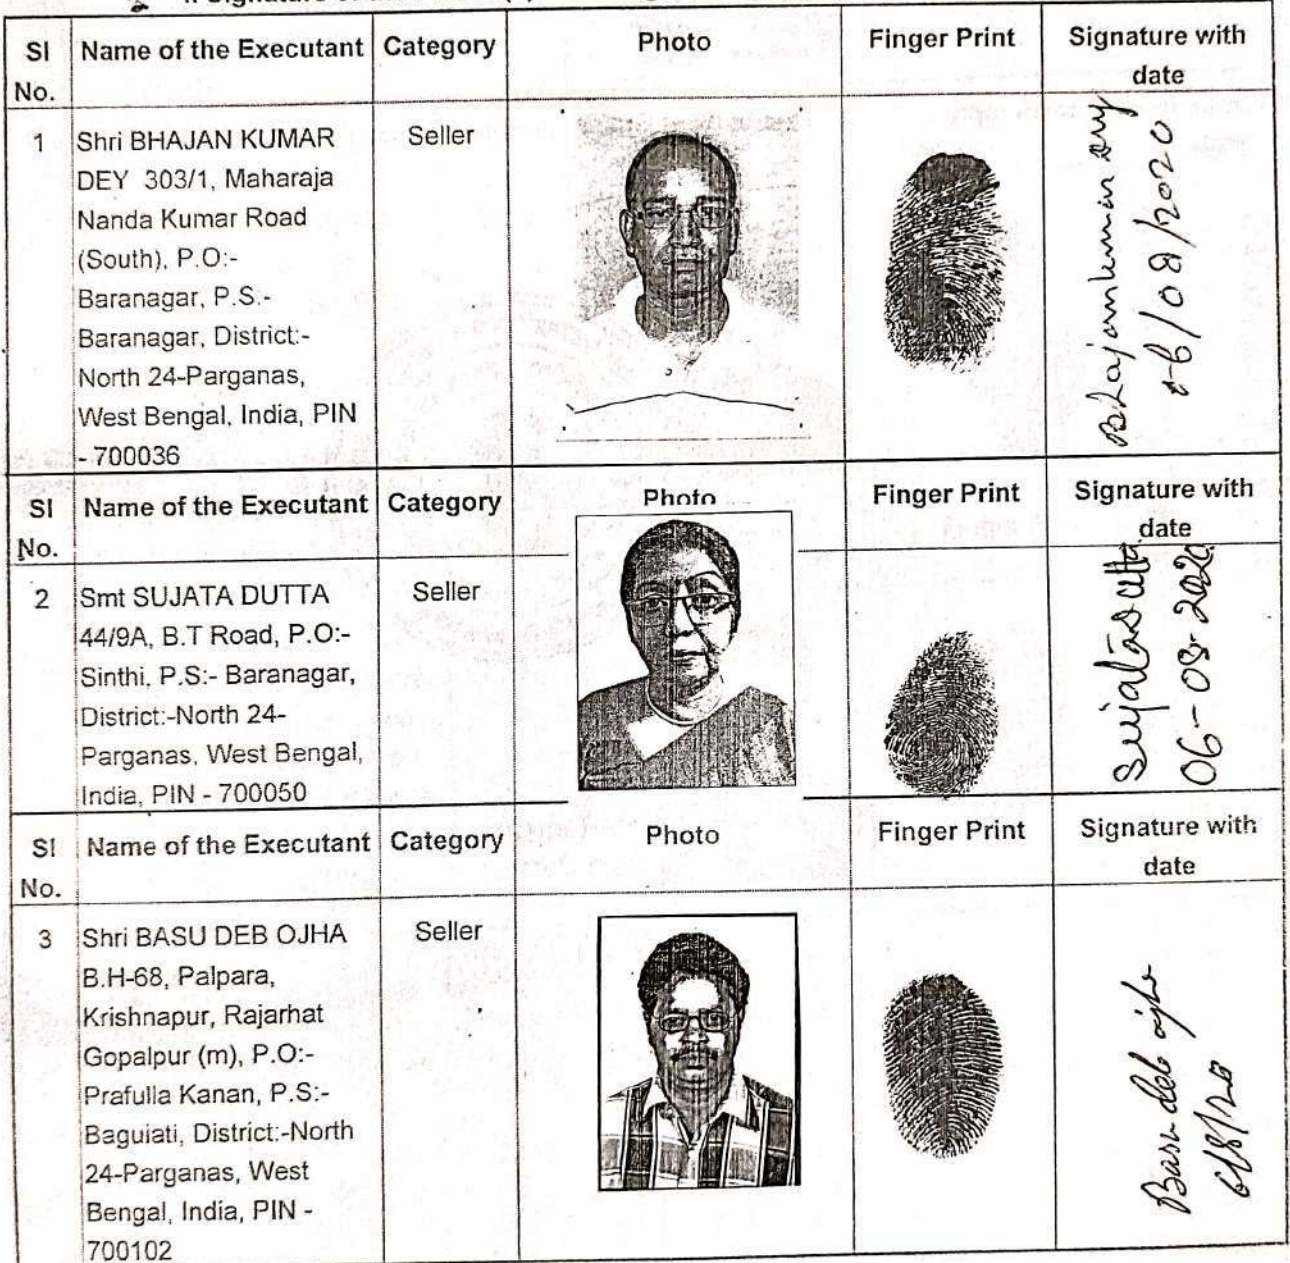 Signature of the
Sl No. Name of the Executant Category Photo Finger Print Signature with date
1 Shri BHAJAN KUMAR Seller
DEY 303/1, Maharaja
Nanda Kumar Road
(South), P.O:-
Baranagar, P.S:-
Baranagar, District:-
North 24-Parganas,
West Bengal, India, PIN
- 700036
Bhajan kumar Dey
06/08/2020
Sl No. Name of the Executant Category Photo Finger Print Signature with date
2 Smt SUJATA DUTTA Seller
44/9A, B.T Road, P.O:-
Sinthi, P.S:- Baranagar,
District:-North 24-
Parganas, West Bengal,
India, PIN - 700050
Sujata Dutta
06-08-2020
Sl No. Name of the Executant Category Photo Finger Print Signature with date
3 Shri BASU DEB OJHA Seller
B.H-68, Palpara,
Krishnapur, Rajarhat
Gopalpur (m), P.O:-
Prafulla Kanan, P.S:-
Baguiati, District:-North
24-Parganas, West
Bengal, India, PIN -
700102
Basu deb ojha
6/8/20